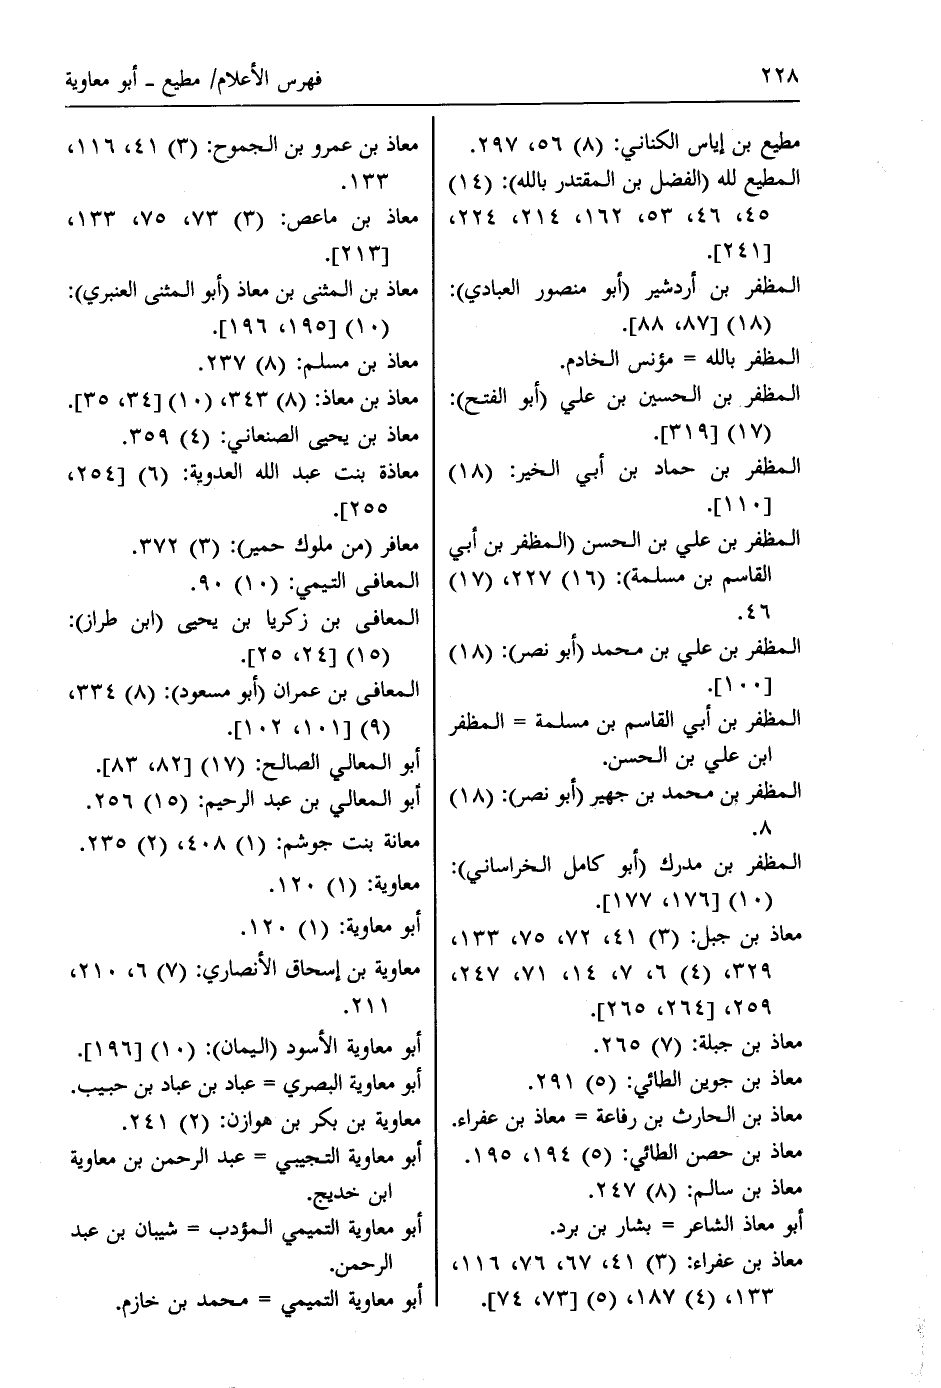 ٢٢٨
فهرس الأعلام/ مطيع ـ أبو معاوية
مطيع بن إياس الكناني: (٨) ٥٦، ٢٩٧.
المطيع لله (الفضل بن المقتدر بالله): (١٤)
٤٥، ٤٦، ٥٣، ١٦٢، ٢١٤، ٢٢٤،
[٢٤١].
المظفر بن أردشير (أبو منصور العبادي):
(١٨) [٨٧، ٨٨].
المظفر بالله = مؤنس الخادم.
المظفر بن الحسين بن علي (أبو الفتح):
(١٧) [٣١٩].
المظفر بن حماد بن أبي الخير: (١٨)
[١١٠].
المظفر بن علي بن الحسن (المظفر بن أبي
القاسم بن مسلمة): (١٦) ٢٢٧، (١٧)
٤٦.
المظفر بن علي بن محمد (أبو نصر): (١٨)
[١٠٠].
المظفر بن أبي القاسم بن مسلمة = المظفر
ابن علي بن الحسن.
المظفر بن محمد بن جهير (أبو نصر): (١٨)
٨.
المظفر بن مدرك (أبو كامل الخراساني):
(١٠) [١٧٦، ١٧٧].
معاذ بن جبل: (٣) ٤١، ٧٢، ٧٥، ١٣٣،
٣٢٩، (٤) ٦، ٧، ١٤، ٧١، ٢٤٧،
٢٥٩، [٢٦٤، ٢٦٥].
معاذ بن جبلة: (٧) ٢٦٥.
معاذ بن جوين الطائي: (٥) ٢٩١.
معاذ بن الحارث بن رفاعة = معاذ بن عفراء.
معاذ بن حصن الطائي: (٥) ١٩٤، ١٩٥.
معاذ بن سالم: (٨) ٢٤٧.
أبو معاذ الشاعر = بشار بن برد.
معاذ بن عفراء: (٣) ٤١، ٦٧، ٧٦، ١١٦،
١٣٣، (٤) ١٨٧، (٥) [٧٣، ٧٤].
معاذ بن عمرو بن الجموح: (٣) ٤١، ١١٦،
١٣٣.
معاذ بن ماعص: (٣) ٧٣، ٧٥، ١٣٣،
[٢١٣].
معاذ بن المثنى بن معاذ (أبو المثنى العنبري):
(١٠) [١٩٥، ١٩٦].
معاذ بن مسلم: (٨) ٢٣٧.
معاذ بن معاذ: (٨) ٣٤٣، (١٠) [٣٤، ٣٥].
معاذ بن يحيى الصنعاني: (٤) ٣٥٩.
معاذة بنت عبد الله العدوية: (٦) [٢٥٤،
٢٥٥].
معافر (من ملوك حمير): (٣) ٣٧٢.
المعافى التيمي: (١٠) ٩٠.
المعافى بن زكريا بن يحيى (ابن طراز):
(١٥) [٢٤، ٢٥].
المعافى بن عمران (أبو مسعود): (٨) ٣٣٤،
(٩) [١٠١، ١٠٢].
أبو المعالي الصالح: (١٧) [٨٢، ٨٣].
أبو المعالي بن عبد الرحيم: (١٥) ٢٥٦.
معانة بنت جوشم: (١) ٤٠٨، (٢) ٢٣٥.
معاوية: (١) ١٢٠.
أبو معاوية: (١) ١٢٠.
معاوية بن إسحاق الأنصاري: (٧) ٦، ٢١٠،
٢١١.
أبو معاوية الأسود (اليمان): (١٠) [١٩٦].
أبو معاوية البصري = عباد بن عباد بن حبيب.
معاوية بن بكر بن هوازن: (٢) ٢٤١.
أبو معاوية التجيبي = عبد الرحمن بن معاوية
ابن خديج.
أبو معاوية التميمي المؤدب = شيبان بن عبد
الرحمن.
أبو معاوية التميمي = محمد بن خازم.